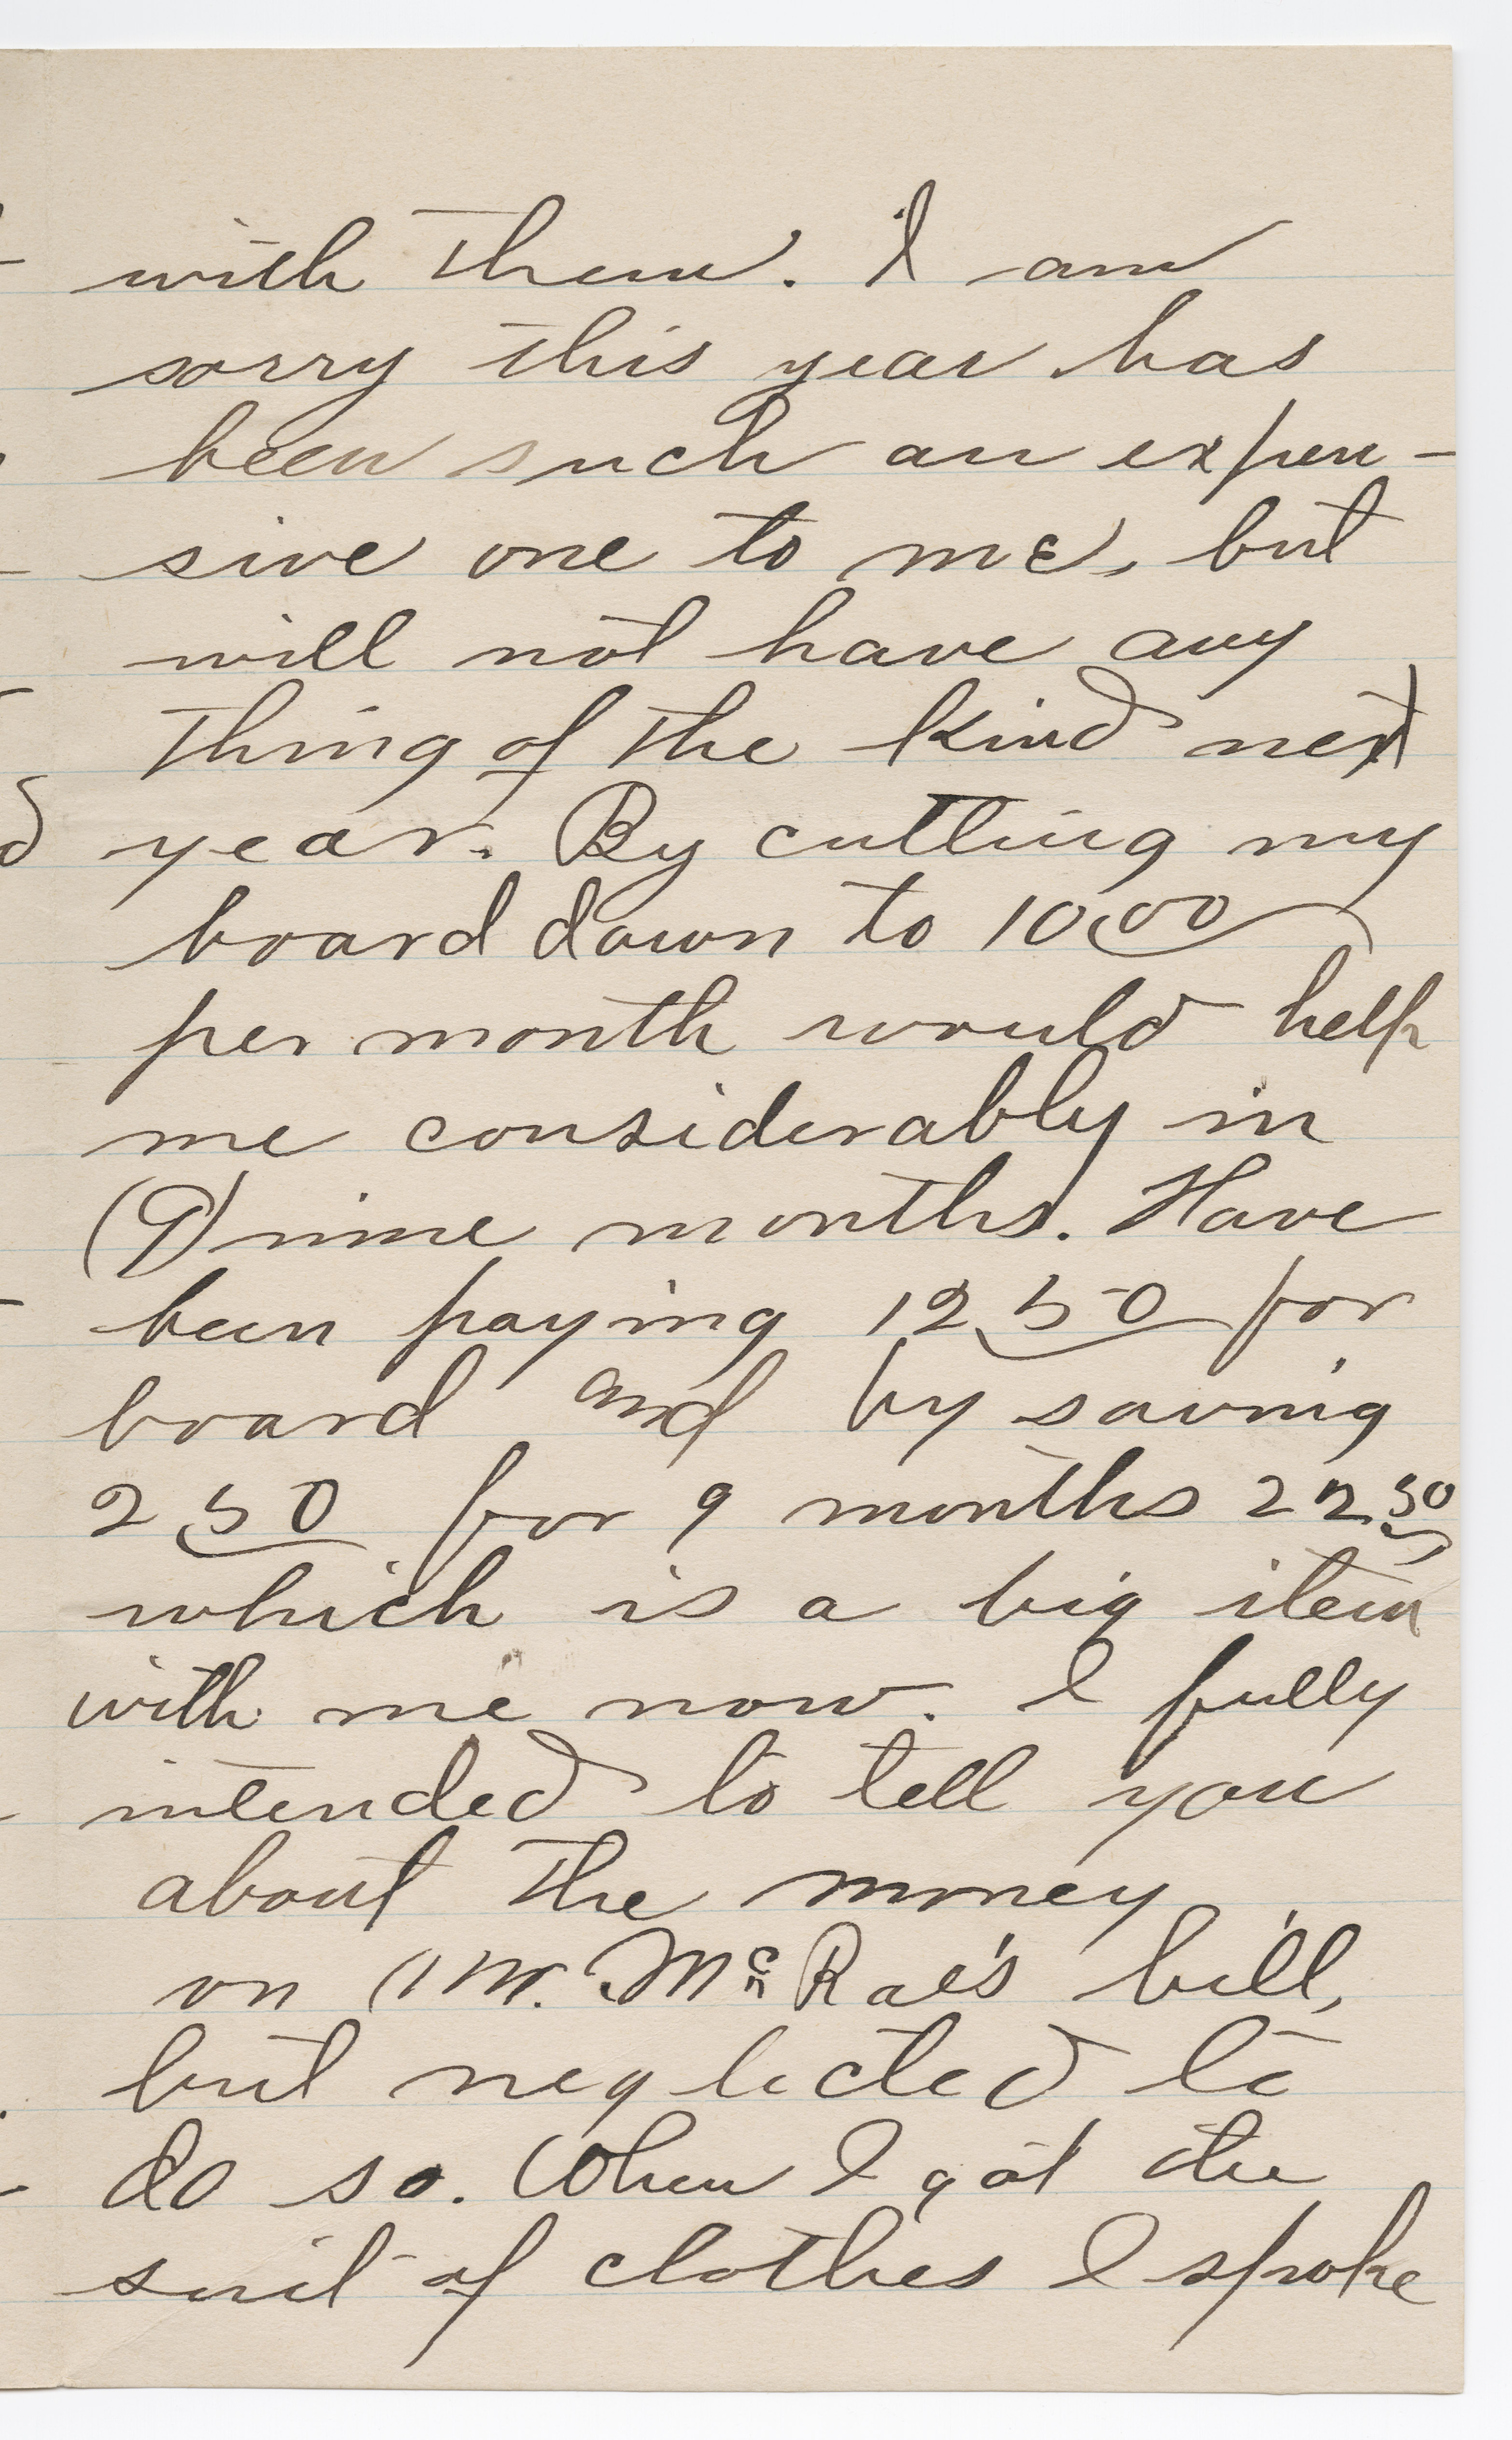 with them. I am
sorry this year has
been such an expen-
sive one to me, but
will not have any
thing of the kind next
year. By cutting my
board down to 1000
per month would help
me considerably in
(9) nine months. Have
been paying 1250 for
board and by saving
250 for 9 months 2250
which is a big item
with me now. I fully
intended to tell you
about the money
on Mr. McRae's bill,
but neglected to
do so. When I got the
suit of clothes I spoke